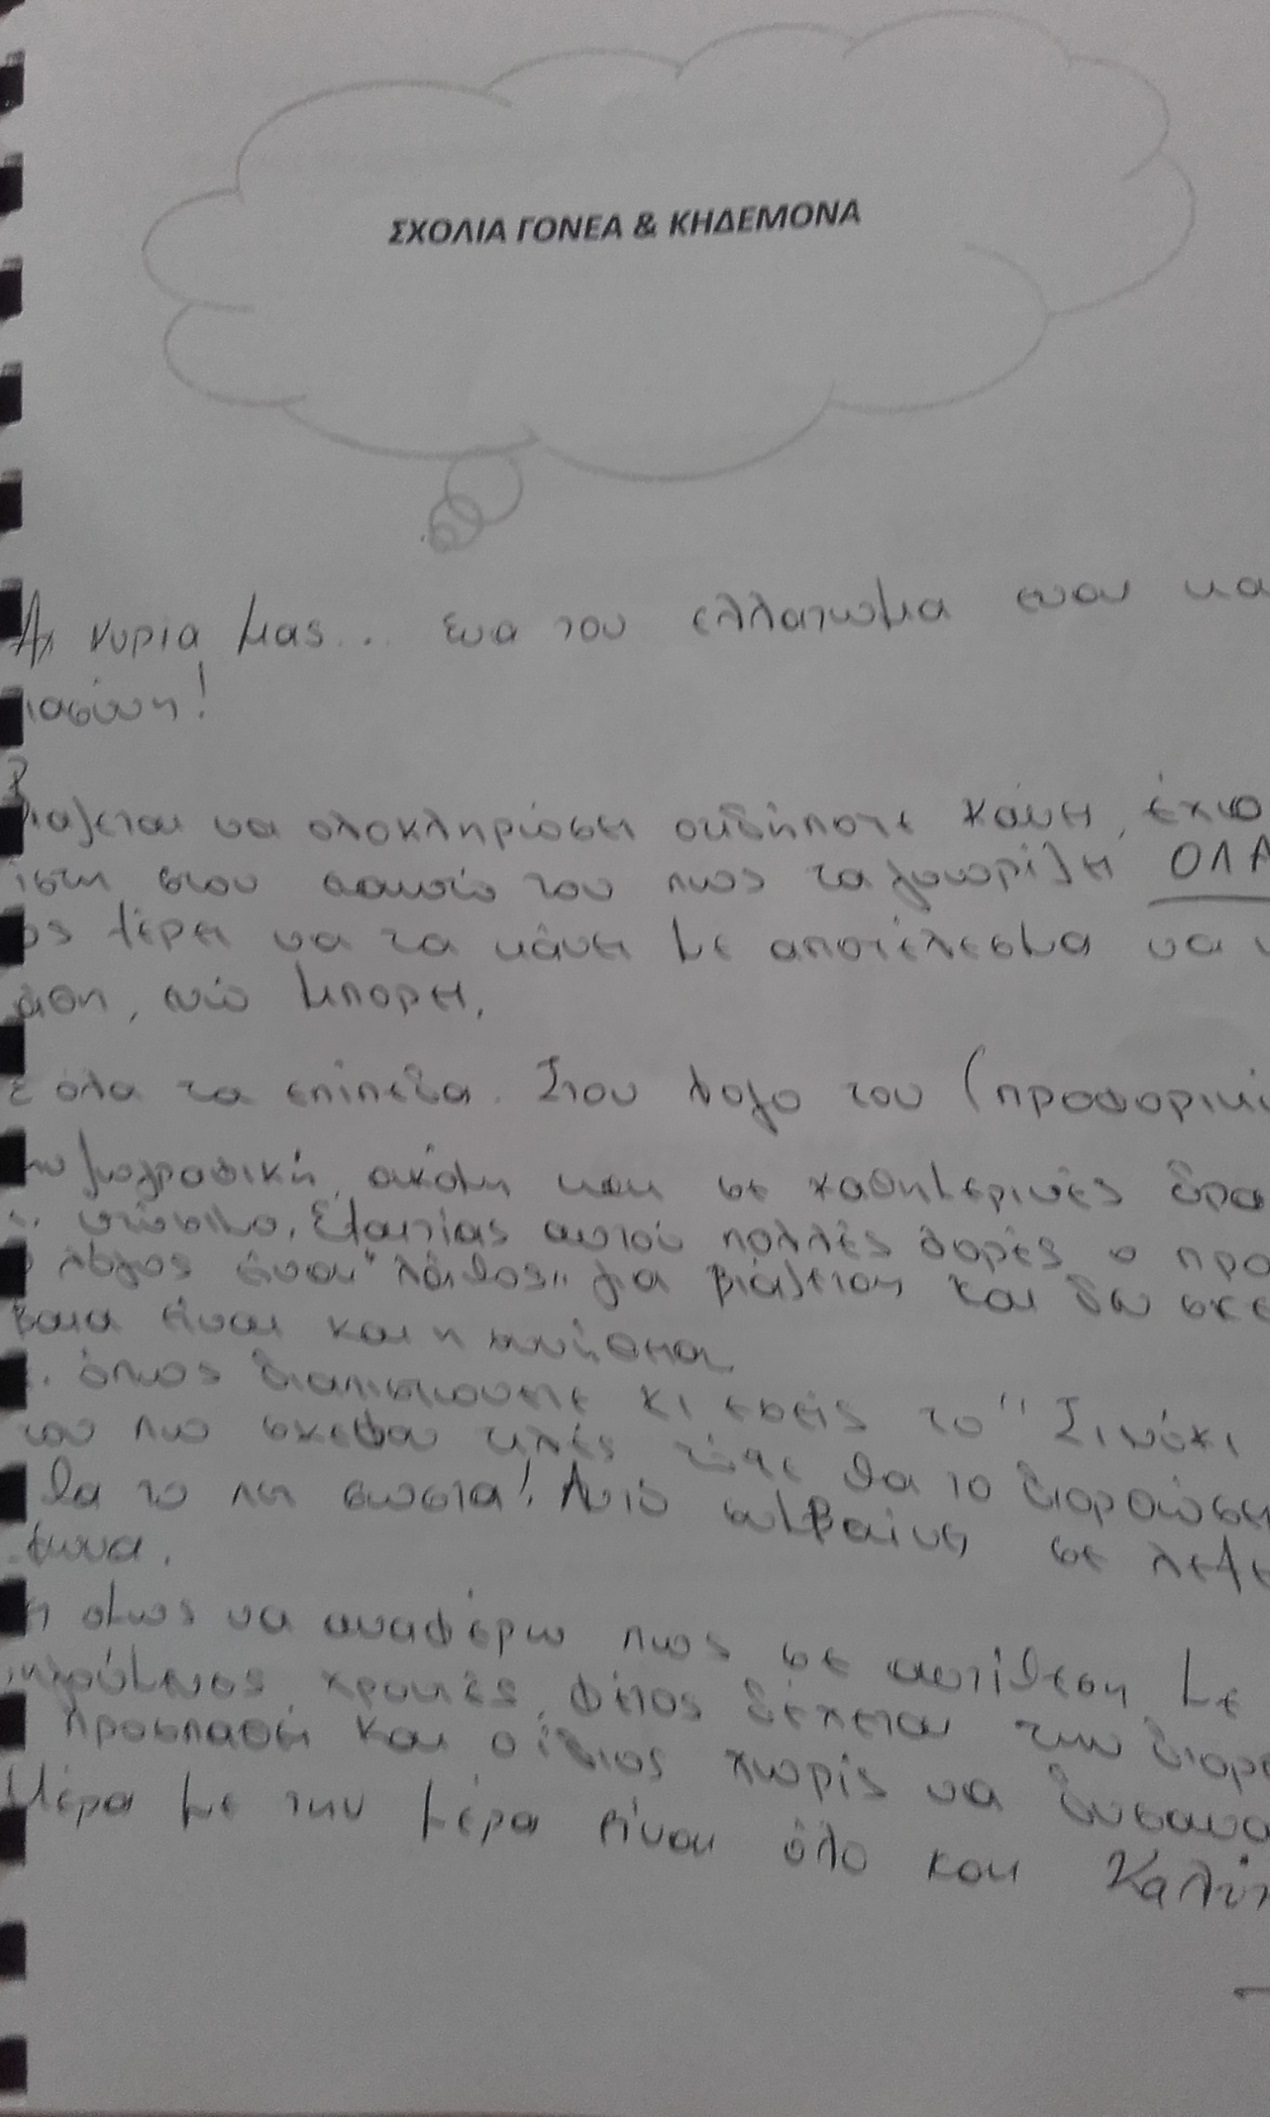 ΣΧΟΛΙΑ ΓΟΝΕΑ & ΚΗΔΕΜΟΝΑ
Αχ κυρία μας... ενα του ελλατωμα ειναι κα
ιασύνη!
Βιαζεται να ολοκληρώσει οτιδήποτε κάνει, έχω
ίστη στον εαυτό του πως τα γνωρίζει ΟΛΑ
ος ξέρει να τα κάνει με αποτέλεσμα να
άθη, ενώ μπορεί.
Σ όλα τα επίπεδα. Στον λογο του (προφορικ
ζωγραφική, ακόμη και σε καθημερινές δρα
ντύσιμο. Εξαιτίας αυτού πολλές φορές ο προ
λόγος είναι "λάθος" για βιάζεται και δεν σκε
βαια είναι και η συνήθεια
όπως διαπιστώνετε κι εσείς το "Σινόκι
του πω σκεψου τι λές τότε θα το διορθώσει
θα το πει σωστα! Αυτό συμβαίνει σε λεξε
όμως να αναφέρω πως σε αντίθεση με
χρονιές, φέτος δέχεται την διορ
προσπαθεί και ο ίδιος χωρίς να δυσανα
Μέρα με την μέρα είναι όλο και καλύτ